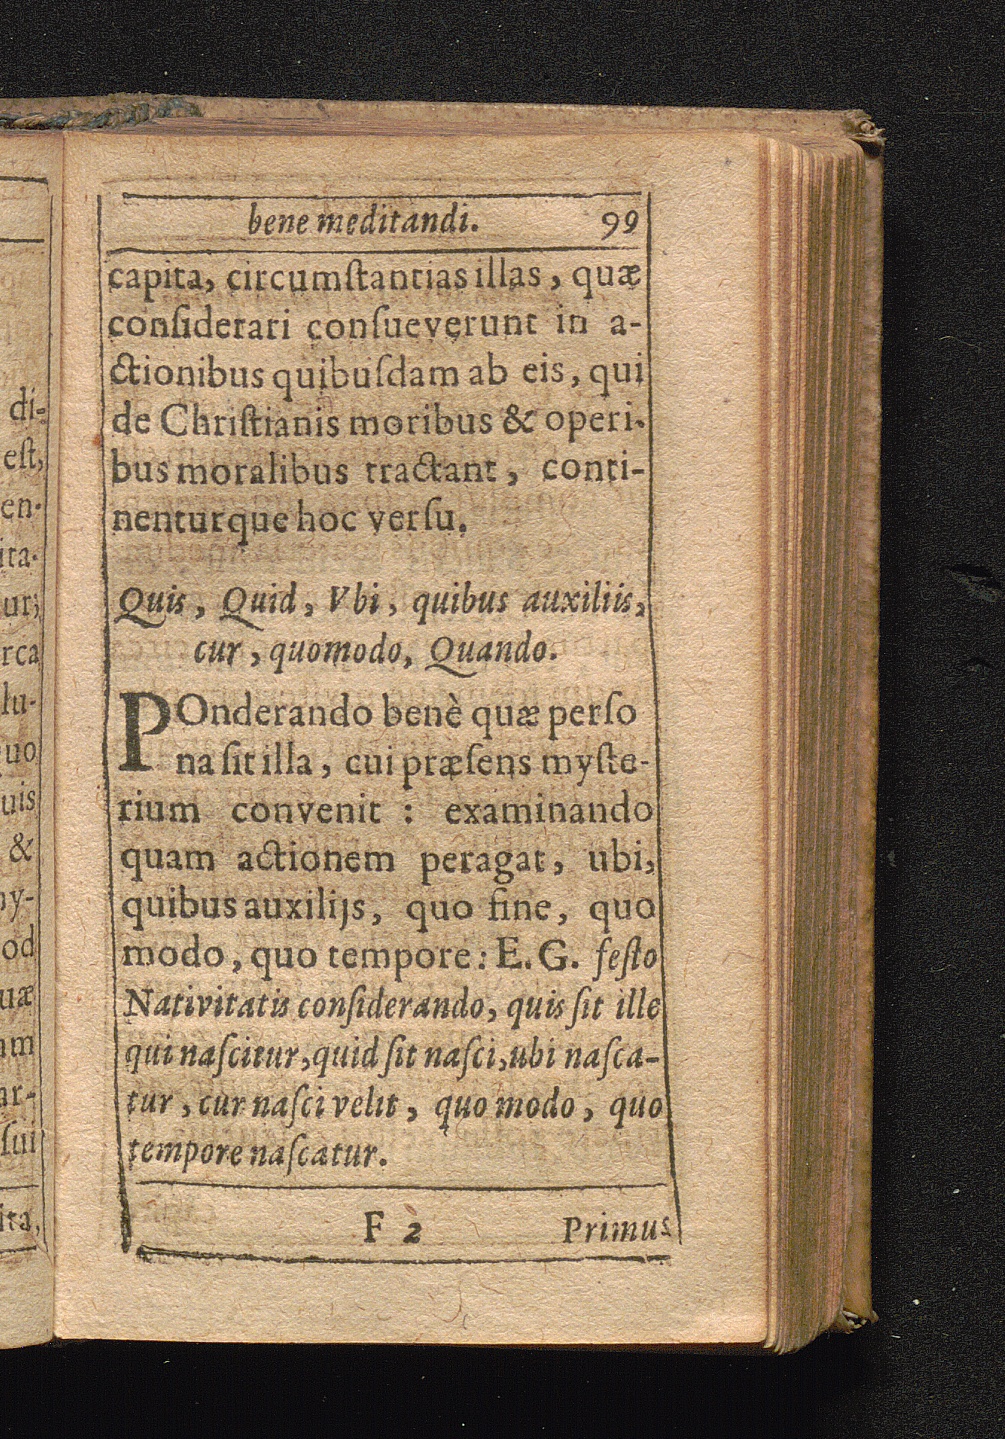 bene meditandi. 99
capita, circumſtantias illas, quæ
conſiderari conſueverunt in a-
ctionibus quibuſdam ab eis, qui
de Chriſtianis moribus & operi-
bus moralibus tractant, conti-
nenturque hoc verſu.
Quis, Quid, Vbi, quibus auxiliis,
cur, quomodo, Quando.
POnderando benè quæ perſo
na ſit illa, cui præſens myſte-
rium convenit : examinando
quam actionem peragat, ubi,
quibus auxilijs, quo fine, quo
modo, quo tempore: E. G. feſto
Nativitatis conſiderando, quis ſit ille
qui naſcitur, quid ſit naſci, ubi naſca-
tur, cur naſci velit, quo modo, quo
tempore naſcatur.
F 2 Primus
di-
eſt,
en-
ita-
ur;
rca
lu-
quo
uis
&
ny-
od
uæ
am
ar-
ſui
ita,